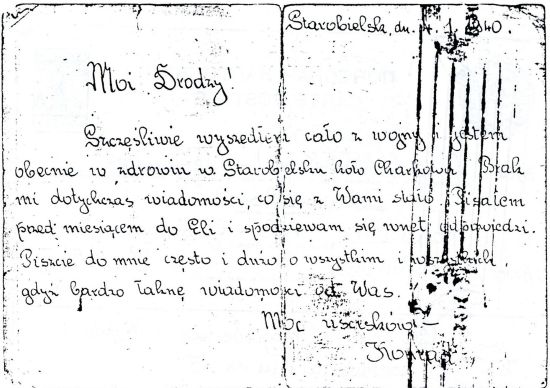 Starobielsk, dn. 4. 1. 1940.
Moi Drodzy!
Szczęśliwie wyszedłem cało z wojny i jestem
obecnie w zdrowiu w Starobielsku koło Charkowa. Brak
mi dotychczas wiadomości, co się z Wami stało. Pisałem
przed miesiącem do Eli i spodziewam się wnet odpowiedzi.
Piszcie do mnie często i dużo o wszystkim i wszystkich,
gdyż bardzo łaknę wiadomości od Was.
Moc uścisków –
Konrad